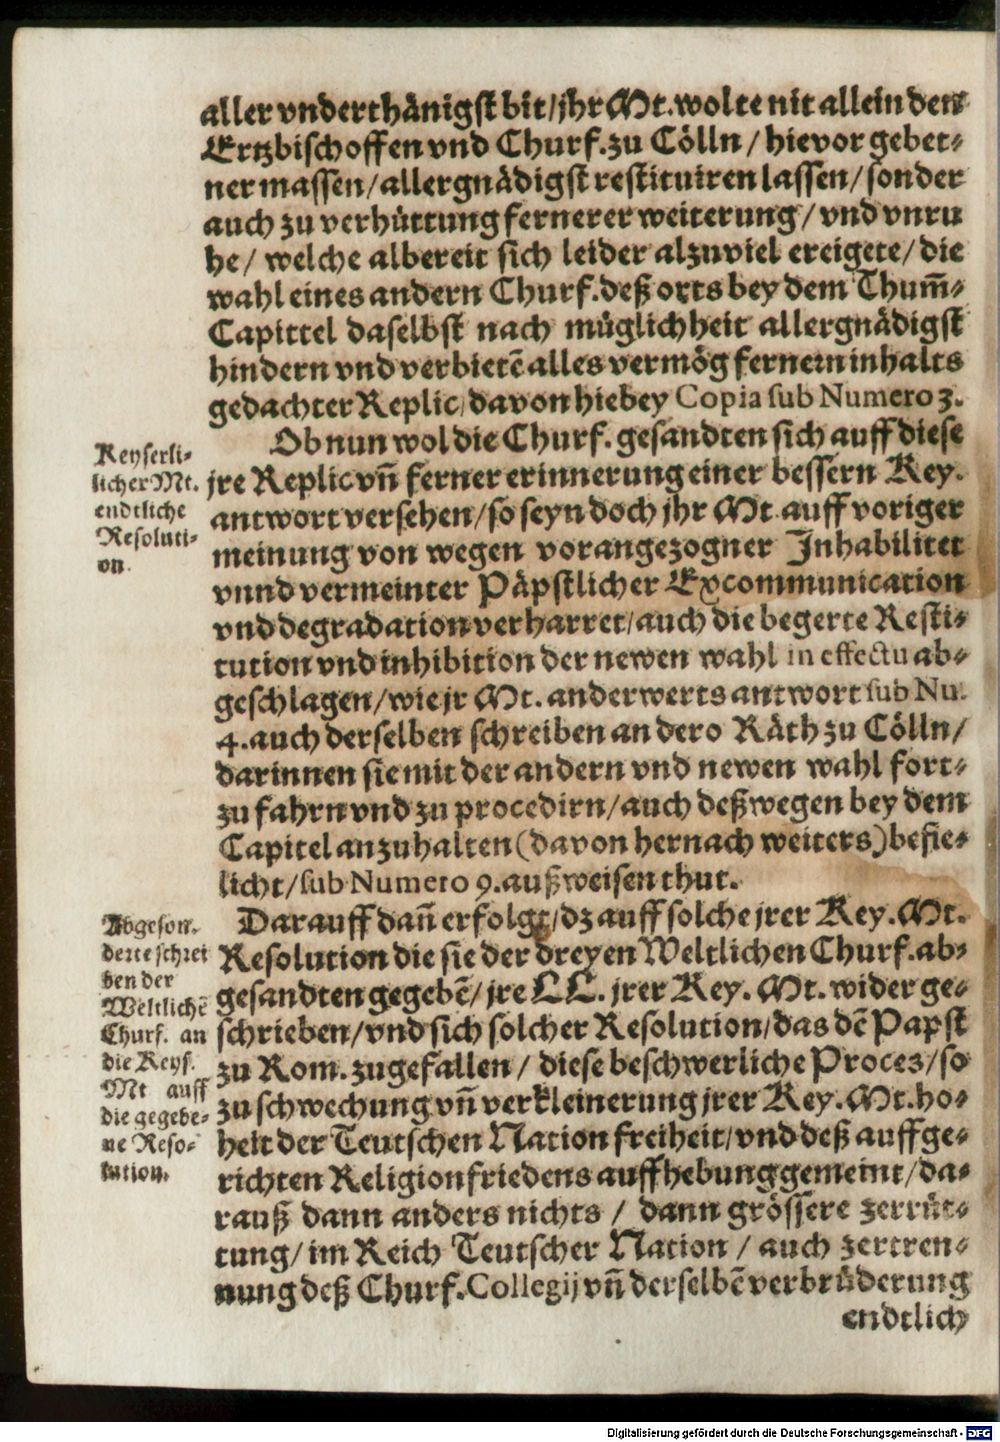 aller vnderthänigst bit/jhr Mt. wolte nit allein den
Ertzbischoffen vnd Churf. zu Cölln / hievor gebet-
ner massen/allergnädigst restituiren lassen/sonder
auch zu verhüttung fernerer weiterung/vnd vnru
he/ welche albereit sich leider alzuviel ereigete/die
wahl eines andern Churf. deß orts bey dem Thum̄-
Capittel daselbst nach müglichheit allergnädigst
hindern vnd verbietē alles vermög fernem inhalts
gedachter Replic/davon hiebey Copia sub Numero 3.
Keyserli-
licher Mt.
endtliche
Resoluti-
on.
Ob nun wol die Churf. gesandten sich auff diese
jre Replic vn̄ ferner erinnerung einer bessern Key.
antwort versehen/so seyn doch jhr Mt. auff voriger
meinung von wegen vorangezogner Inhabilitet
vnnd vermeinter Päpstlicher Excommunication
vnd degradation verharret/auch die begerte Resti-
tution vnd inhibition der newen wahl in effectu ab-
geschlagen/wie jr Mt. anderwerts antwort sub Nu.
4. auch derselben schreiben an dero Räth zu Cölln/
darinnen sie mit der andern vnd newen wahl fort-
zu fahrn vnd zu procedirn/auch deßwegen bey dem
Capitel anzuhalten (davon hernach weiters) befie-
licht/sub Numero 9. außweisen thut.
Abgeson-
derte schrei
ben der
Weltlichē
Churf. an
die Keys.
Mt auff
die gegebe-
ne Reso-
lution.
Darauff dan̄ erfolgt/dz auff solche jrer Key. Mt.
Resolution die sie der dreyen Weltlichen Churf. ab-
gesandten gegebē/jre LL. jrer Key. Mt. wider ge-
schrieben/vnd sich solcher Resolution/das dē Papst
zu Rom. zugefallen / diese beschwerliche Proces/so
zu schwechung vn̄ verkleinerung jrer Key. Mt. ho-
heit der Teutschen Nation freiheit/vnd deß auffge-
richten Religionfriedens auffhebung gemeint/da-
rauß dann anders nichts / dann grössere zerrüt-
tung/im Reich Teutscher Nation / auch zertren-
nung deß Churf. Collegij vn̄ derselbē verbrüderung
endtlich
Digitalisierung gefördert durch die Deutsche Forschungsgemeinschaft - DFG